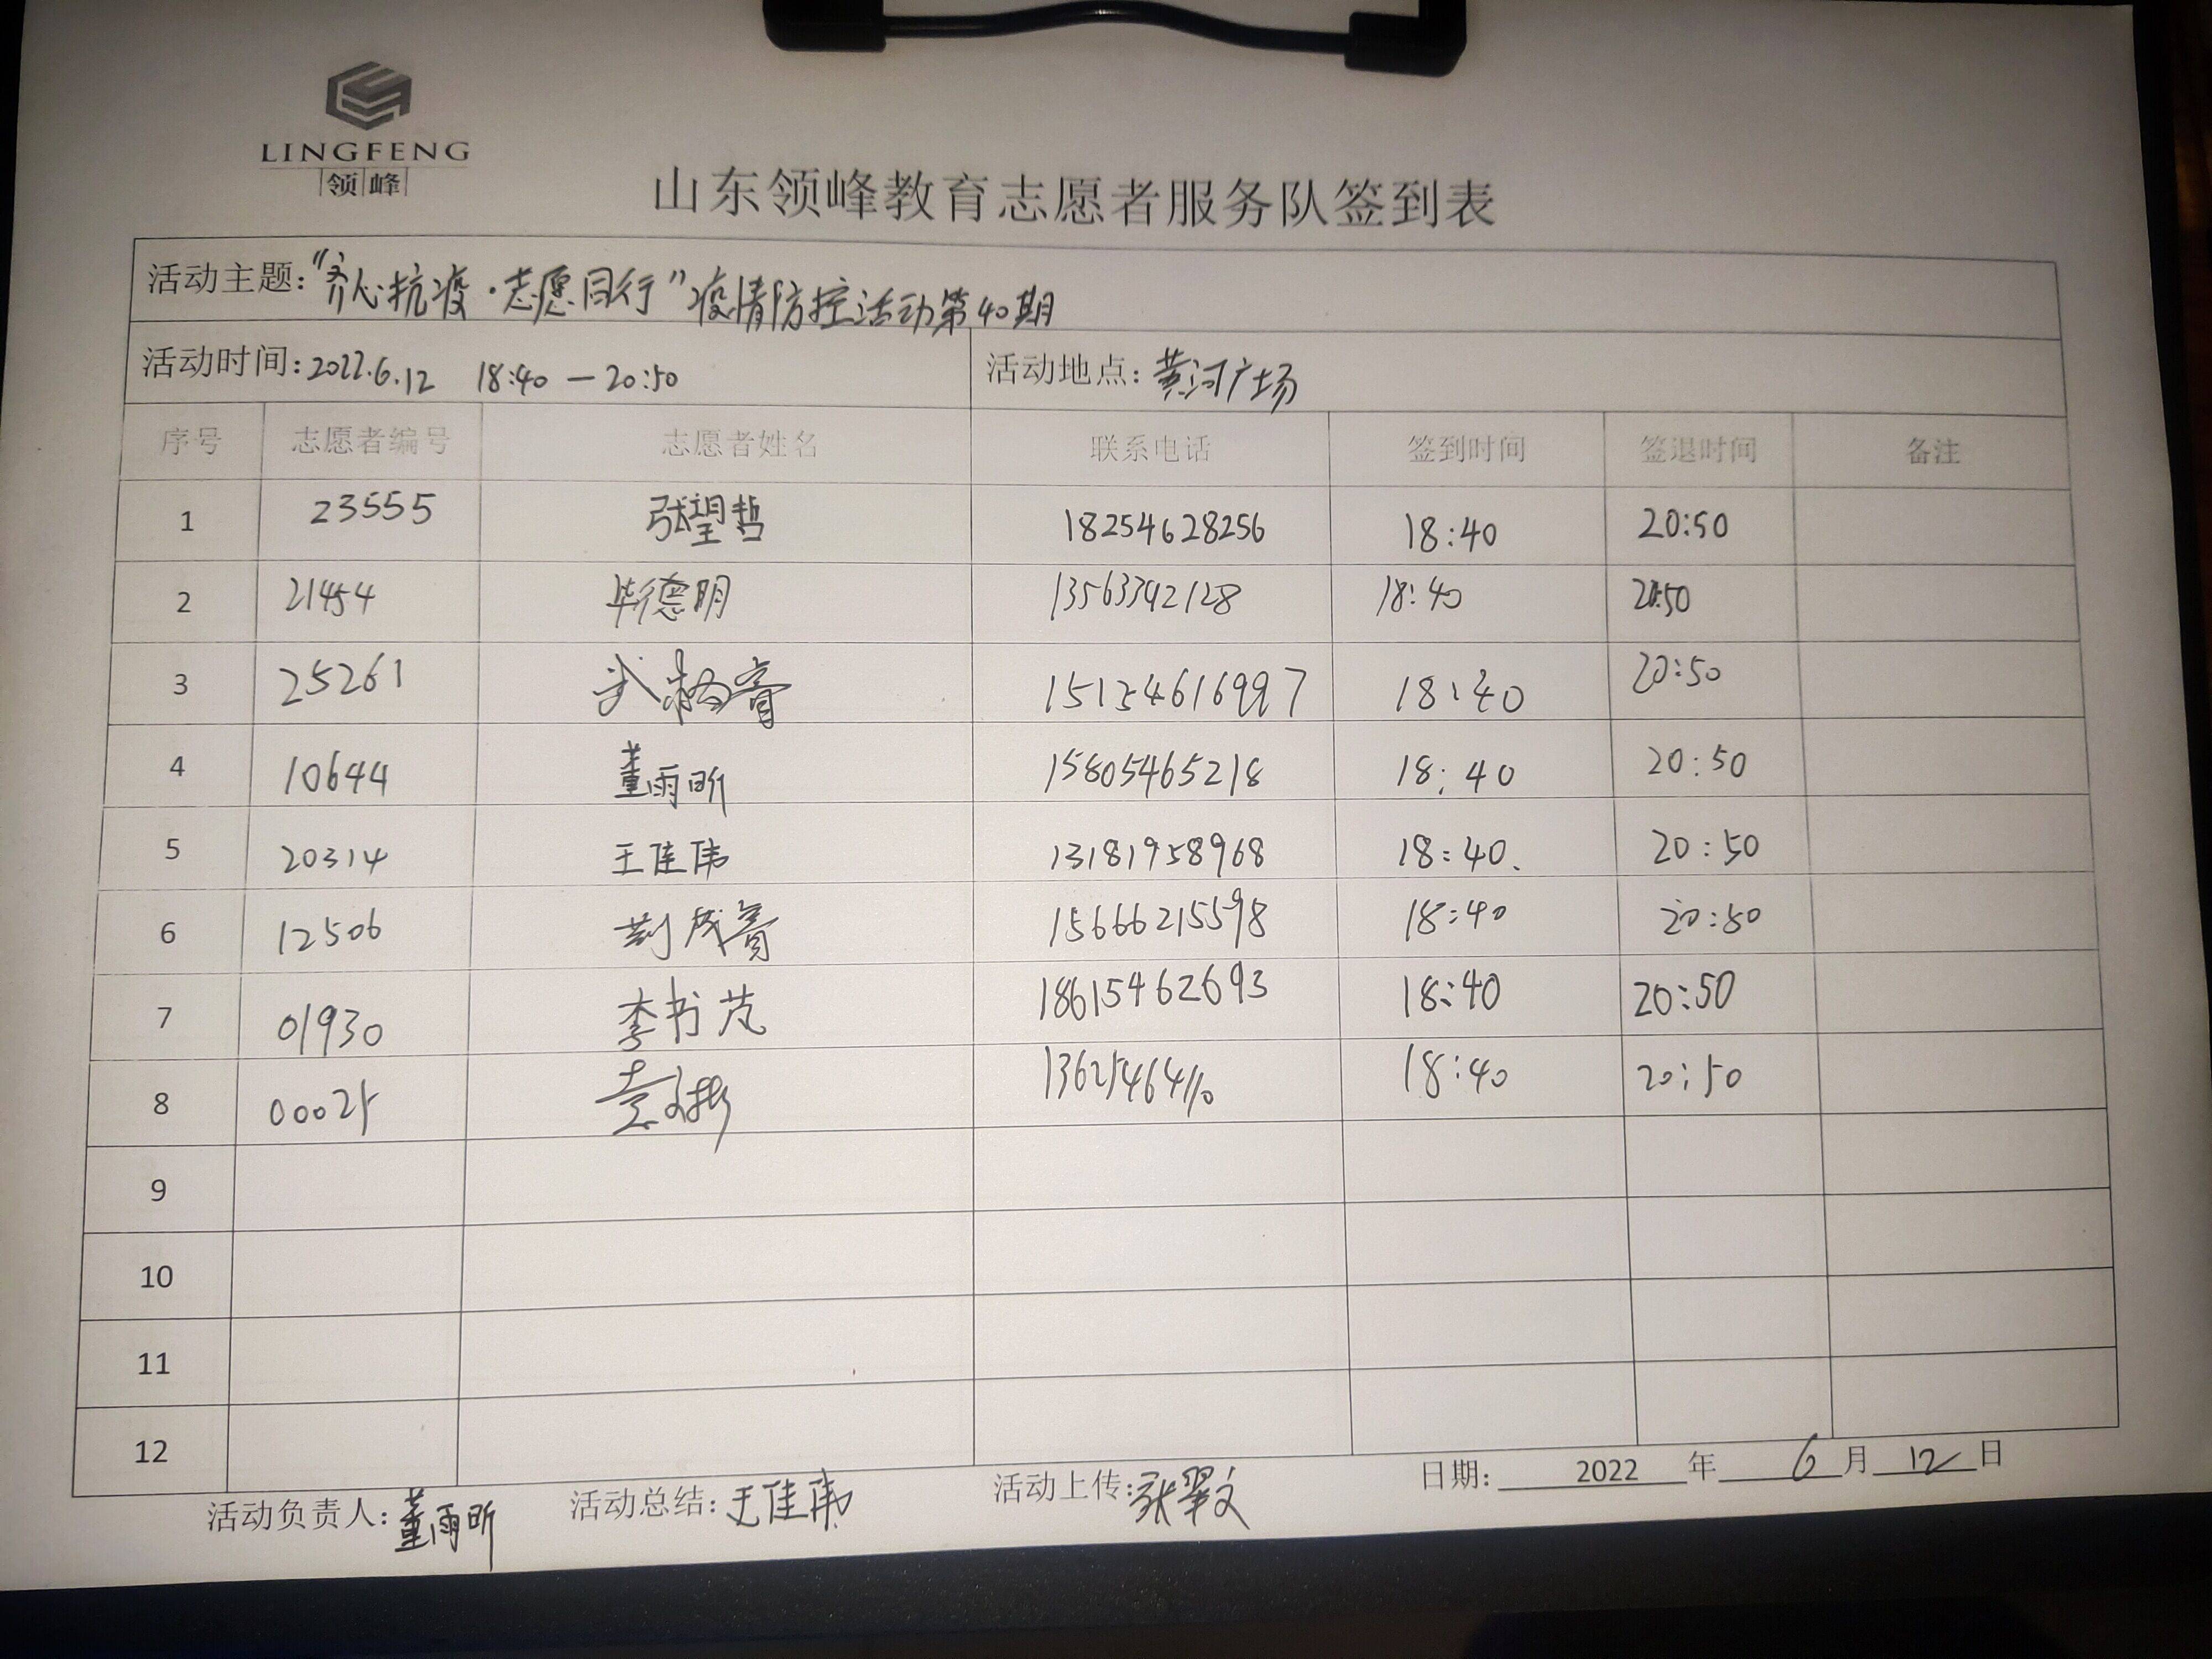 LINGFENG
领峰
山东领峰教育志愿者服务队签到表
活动主题:“齐心抗疫·志愿同行”疫情防控活动第40期
活动时间:2022.6.12 18:40—20:50 活动地点:黄河广场
序号 志愿者编号 志愿者姓名 联系电话 签到时间 签退时间 备注
1 23555 张望哲 18254628256 18:40 20:50
2 21454 毕德明 13563342128 18:40 20:50
3 25261 15154616997 18:40 20:50
4 10644 董雨昕 15805465218 18:40 20:50
5 20314 王佳伟 13181958968 18:40. 20:50
6 12506 15666215598 18:40 20:50
7 01930 李书茂 18615462693 18:40 20:50
8 00025 18:40 20:50
9
10
11
12
活动负责人:董雨昕 活动总结:王佳伟 活动上传:张翠文 日期: 2022 年 6 月 12 日